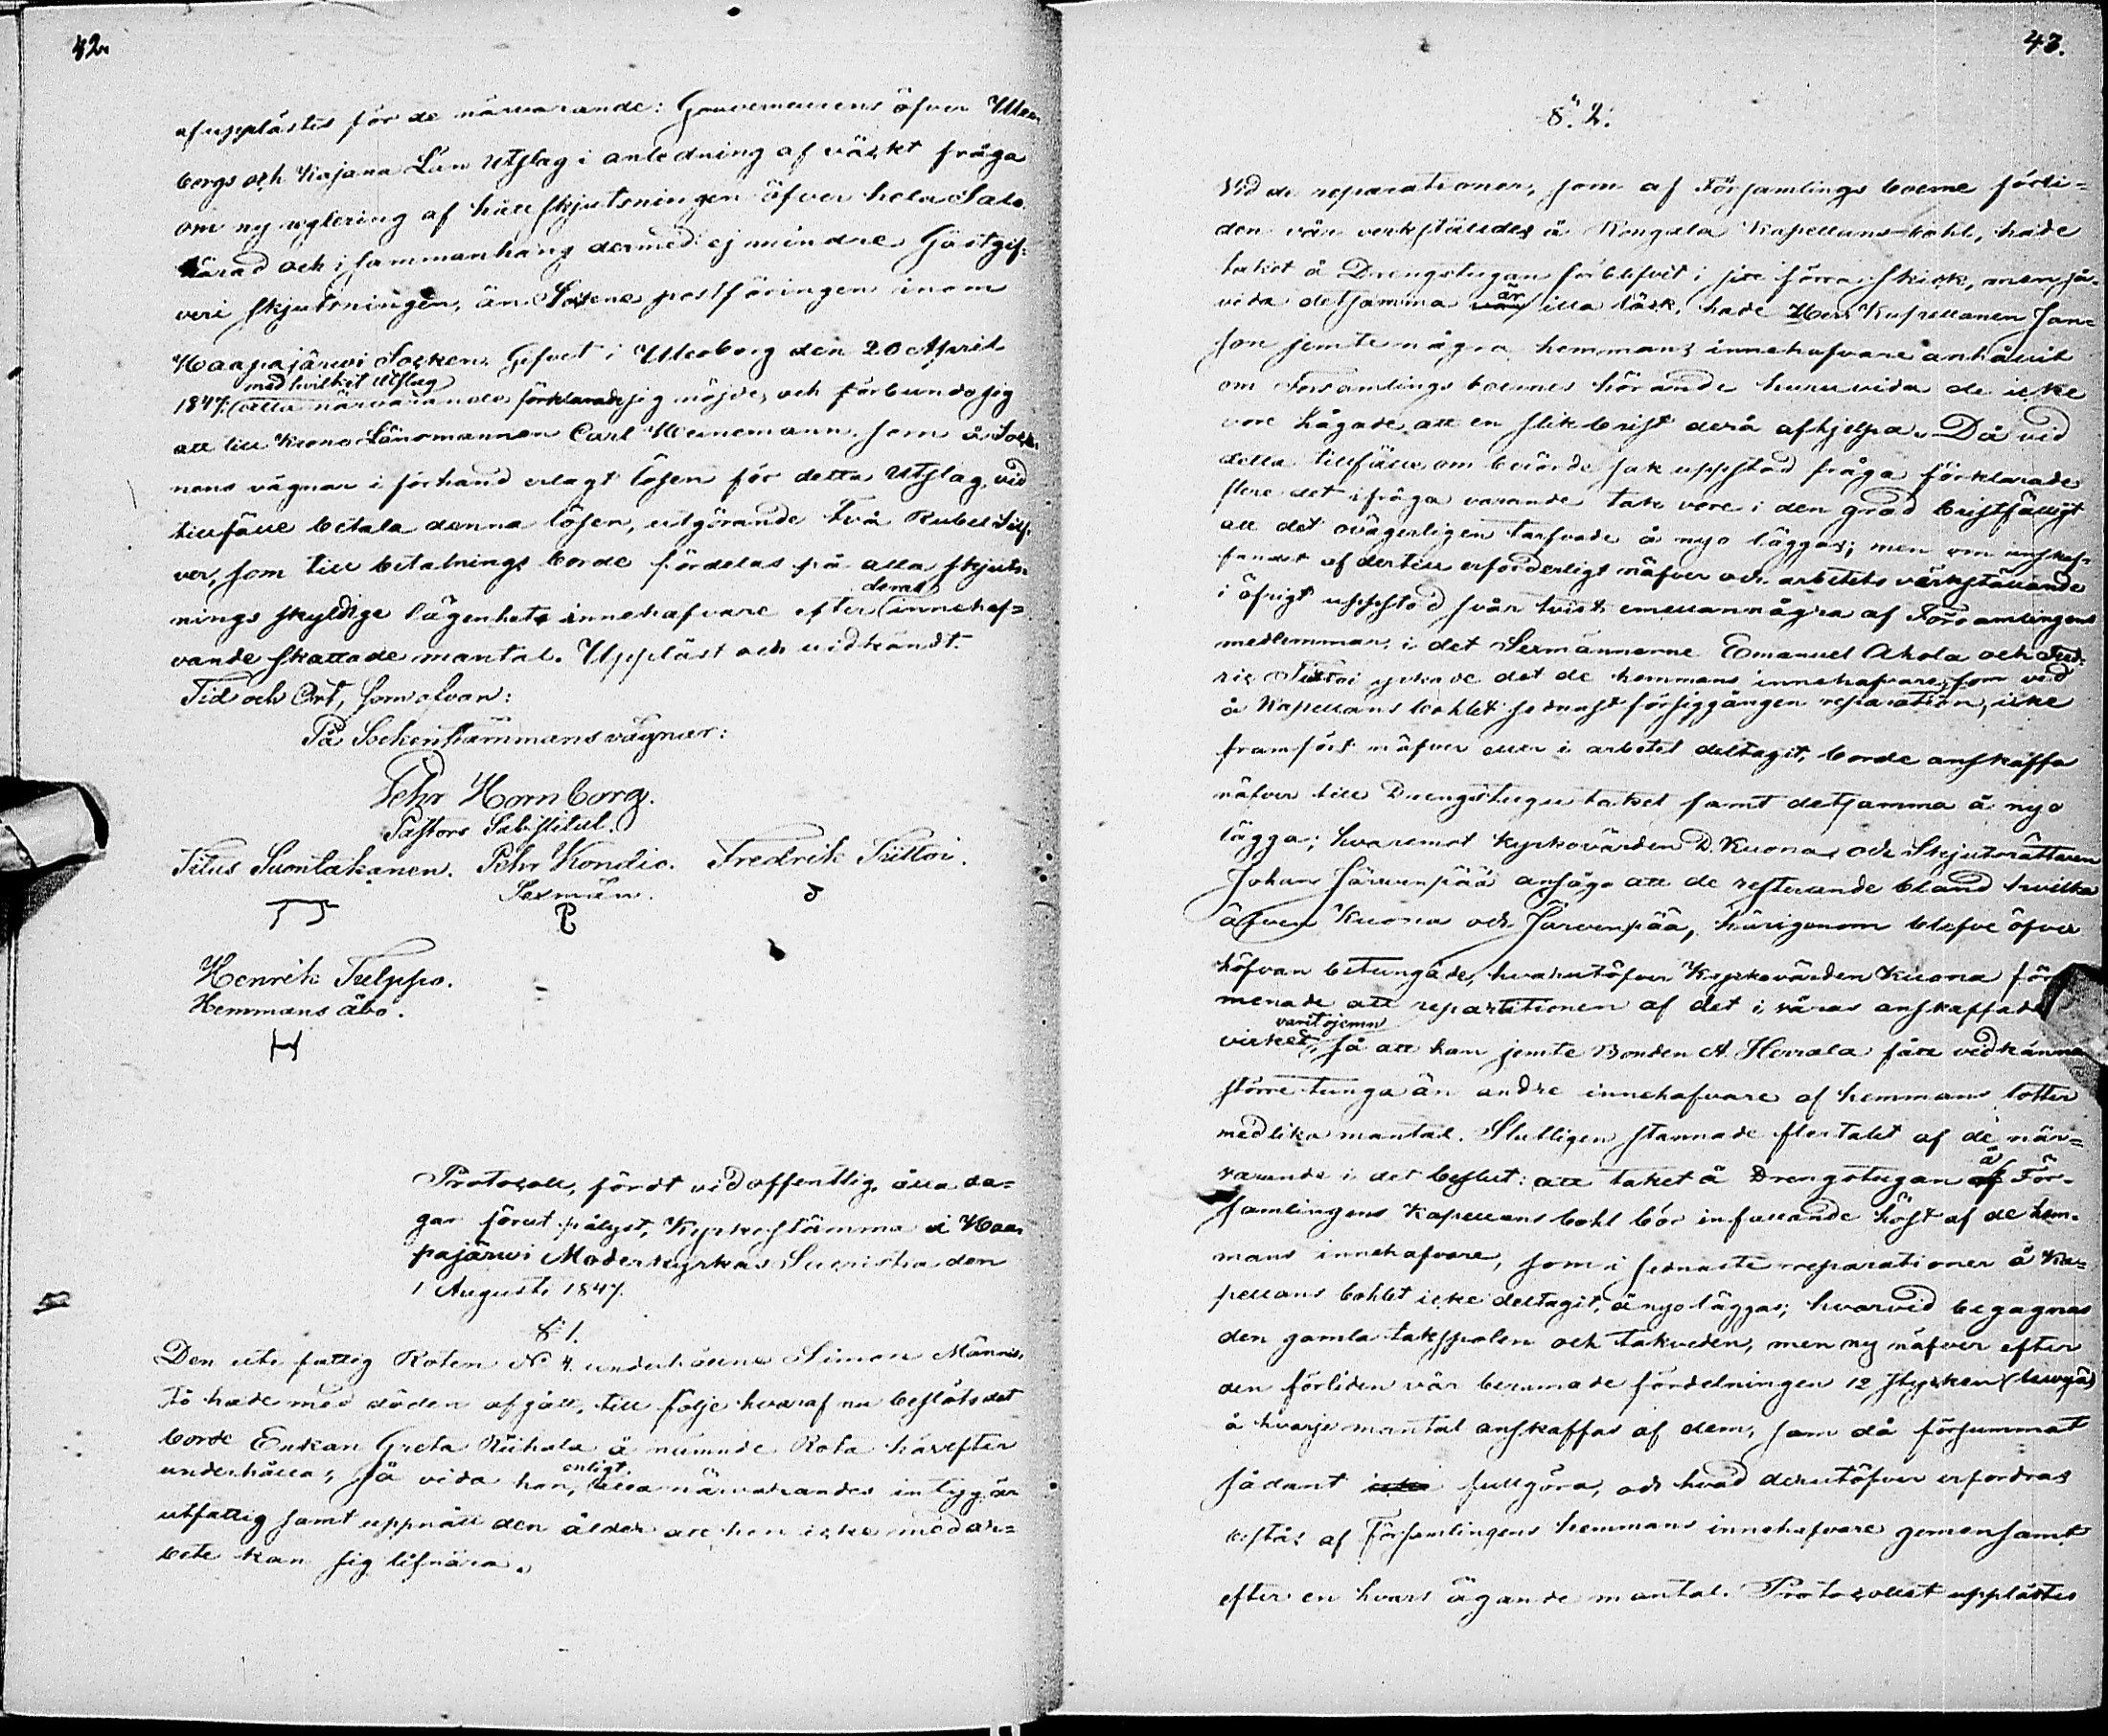 42.
afupplästes för de närvarande: Gouverneurens öfver Uleå-
borgs och Kajana Län Utslag i anledning af väckt fråga
om ny reglering af hållskjutsningen öfver hela Salo
härad och i sammanhang dermed ej mindre Gästgif-
veri skjutsningen, än Sockne postföringen inom
Haapajärwi Socken. Gifvet i Uleåborg den 20 April
med hvilket Utslag
1847. alla närvarande förklarade sig nöjde, och förbundo sig
att till Krono Länsmannen Carl Weinemann, som å Sock-
nens vägnar i förhand erlagt lösen för detta Utslag, vid
tillfälle betala denna lösen, utgörande Två Rubel Silf-
ver, som till betalnings borde fördelas på alla skjuts-
deras
nings skyldige lägenhets innehafvare efter innehaf-
vande skattade mantal. Uppläst och vidkändt.
Tid och Ort, som ofvan:
På Sockenstämmans vägnar:
Pehr Hornborg.
Pastors Substitut.
Titus Suontakanen. Pehr Kondic. Fredrik Tuttoi.
Sexmän.
Henrik Tulppo.
Hemmans åbo.
Protocoll, fördt vid offentlig, åtta da-
gar förut pålyst, Kyrkostämma i Haa-
pajärwi Moderkyrkas Sacristia den
1 Augusti 1847.
§ 1.
Den ute fattig Roten N:o 4. underhållne Simon Männis-
tö hade med döden afgått, till följe hvaraf nu beslöts det
borde Enkan Greta Riihala å nämnde Rota härefter
enligt
underhållas, så vida hon, alla närvarandes intyg, är
utfattig samt uppnått den ålder att hon icke med ar-
bete kan sig lifnära.
43.
§. 2.
Vid de reparationer, som af Församlings boerne förli-
den vår verkställdes å Kapellans bohl, hade
taket å Drengstugan förblifvit i sitt förra skick, men så-
är
vida detsamma illa läck, hade Herr Kapellanen Jan-
son jemte några hemmans innehafvare anhållit
om Församlings boernes hörande huruvida de icke
vore hågade att en slik brist derå afhjelpa. Då vid
detta tillfälle om berörde sak uppstod fråga förklarade
flere det ifråga varande tak vore i den grad bristfälligt
att det ovägerligen tarfvade å nyo läggas; men om anskaf-
fandet af dertill erforderligt näfver och arbetets värkställande
i öfrigt uppstod svår tvist emellan några af Församlingens
medlemmar, i det Sexmännerne Emanuel Ahola och Fred-
ric Tuttoi yrkade det de hemmans innehafvare, som vid
å Kapellans bohlet sednast försiggången reparation, icke
framfört näfver eller i arbetet deltagit, borde anskaffa
näfver till Drengstugu taket samt detsamma å nyo
lägga; hvaremot Kyrkovärden D. Kuona och Skjutsrättaren
Johan Järvenpää ansågo att de resterande bland hvilka
äfven Kuona och Järvenpää, härigenom blefve öfver
höfvan betungade, hvarutöfver Kyrkovärden Kuona för-
menade att repartitionen af det i våras anskaffade
varit ojemn
virket, så att han jemte Bonden A. Herrala fått vidkänna
större tunga än andre innehafvare af hemmans lotter
med lika mantal. Slutligen stannade flertalet af de när-
å
varande i det beslut: att taket å Drengstugan För-
samlingens Kapellans bohl bör infallande höst af de hem-
mans innehafvare, som i sednaste reparationer å Ka-
pellans bohlet icke deltagit, å nyo läggas; hvarvid begagnas
den gamla takspolen och takveden, men ny näfver efter
den förliden vår beramade fördelningen 12 stycken (lewyä)
å hvarje mantal anskaffas af dem, som då försummat
sådant fullgöra, och hvad derutöfver erfordras
bestås af Församlingens hemmans innehafvare gemensamt
efter en hvars ägande mantal. Protocollet upplästes